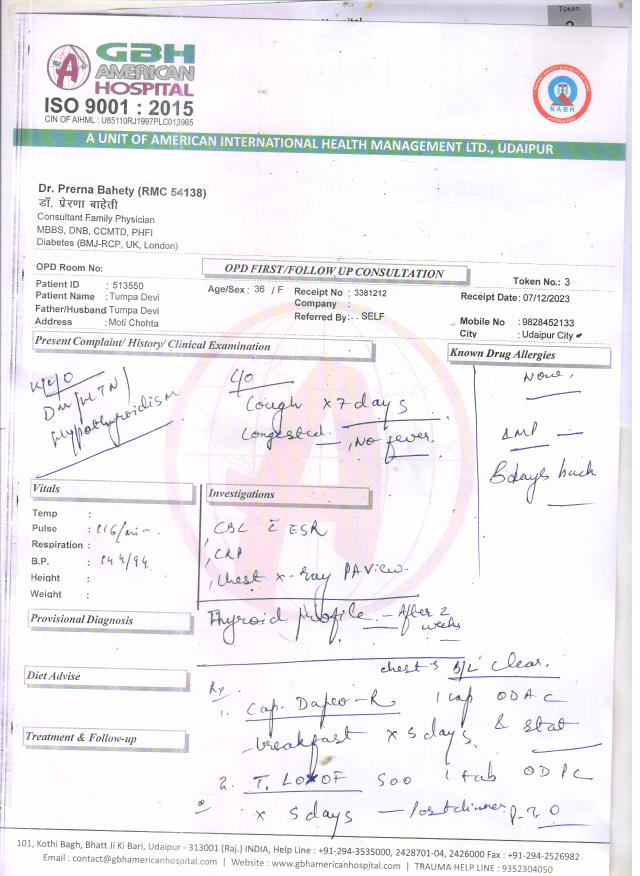 Token
GBH
AMERICAN
HOSPITAL
ISO 9001 : 2015
CIN OF AIHML : U85110RJ1997PLC013965
NABH
A UNIT OF AMERICAN INTERNATIONAL HEALTH MANAGEMENT LTD., UDAIPUR
Dr. Prerna Bahety (RMC 54138)
डॉ. प्रेरणा बाहेती
Consultant Family Physician
MBBS, DNB, CCMTD, PHFI
Diabetes (BMJ-RCP, UK, London)
OPD Room No: OPD FIRST/FOLLOW UP CONSULTATION Token No.: 3
Patient ID : 513550 Age/Sex : 36 / F Receipt No : 3381212 Receipt Date: 07/12/2023
Patient Name : Tumpa Devi Company :
Father/Husband : Tumpa Devi Referred By: . SELF Mobile No : 9828452133
Address : Moti Chohta City : Udaipur City
Present Complaint/ History/ Clinical Examination Known Drug Allergies
K/C/O C/O None,
DM/HTN Cough x 7 days
Hypothyroidism Congested, No fever. LMP
8 days back
Vitals Investigations
Temp :
Pulse : 116/min CBC c̄ ESR
Respiration : CRP
B.P. : 144/94 Chest x-ray PA View
Height :
Weight :
Provisional Diagnosis Thyroid profile - After 2 weeks
Diet Advise chest B/L clear.
Rx
1. Cap. Dapeo-R 1 cap OD AC
Treatment & Follow-up breakfast x 5 days & stat
2. T. LOXOF 500 1 tab OD PC
x 5 days - Post dinner P.T.O
101, Kothi Bagh, Bhatt Ji Ki Bari, Udaipur - 313001 (Raj.) INDIA, Help Line : +91-294-3535000, 2428701-04, 2426000 Fax : +91-294-2526982
Email : contact@gbhamericanhospital.com | Website : www.gbhamericanhospital.com | TRAUMA HELP LINE : 9352304050